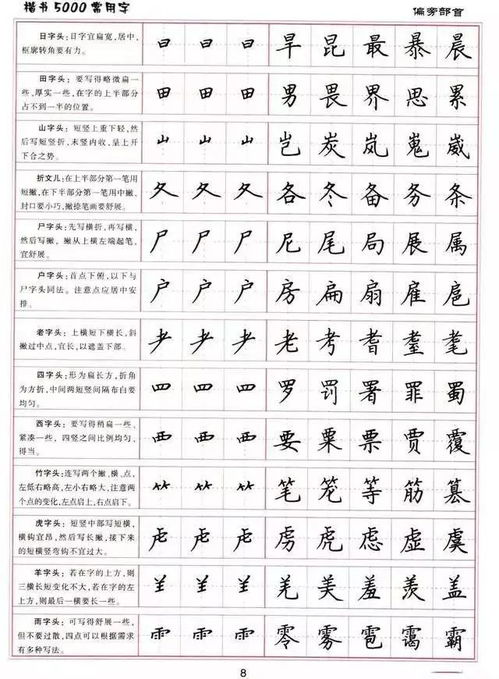 楷书5000常用字
偏旁部首
日字头：日字宜扁宽，居中，
框廓转角要有力。
日 日 日 旱 昆 最 暴 晨
田字头：要写得略微扁一
些，厚实一些，在字的上半部分
占不到一半的位置。
田 田 田 男 畏 界 思 累
山字头：短竖上重下轻，然
后写短竖折，末竖内收，呈上开
下合之势。
山 山 山 岂 炭 岚 嵬 崴
折文儿：在上半部分第一笔用
短撇，在下半部分第一笔用中撇，
封口要小巧，撇捺笔画要舒展。
夂 夂 夂 各 冬 备 务 条
尸字头：先写横折，再写横，
然后写撇，撇从上横左端起笔，
宜舒展。
尸 尸 尸 尼 尾 局 展 属
户字头：首点下俯，以下与
尸字头同法。注意点应居中安
排。
户 户 户 房 扁 扇 雇 扈
老字头：上横短下横长，斜
撇过中点，宜长，以遮盖下部。
耂 耂 耂 老 考 耆 耋 耄
四字头：形为扁长方，折角
为方折，中间两短竖间隔布白要
均匀。
罒 罒 罒 罗 罚 署 罪 蜀
西字头：要写得稍扁一些，
紧凑一些，四竖之间比例均匀，
得当。
覀 覀 覀 要 粟 票 贾 覆
竹字头：连写两个撇、横、点，
左低右略高，左小右略大，注意两
个点的变化，左点启上，右点启下。
⺮ ⺮ ⺮ 笔 笼 等 筋 篡
虎字头：短竖中部写短横，
横钩宜昂，然后写长撇，接下来
的短横竖弯钩不宜过大。
虍 虍 虍 虏 虎 虑 虚 虞
羊字头：若在字的上方，则
三横长短变化不大，若在字的左
上方，则最后一横要长一些。
𦍌 𦍌 𦍌 羌 美 羞 羡 盖
雨字头：可写得舒展一些，
但不要过散，四点可以根据需求
有多种写法。
⻗ ⻗ ⻗ 零 雾 雹 霭 霸
8